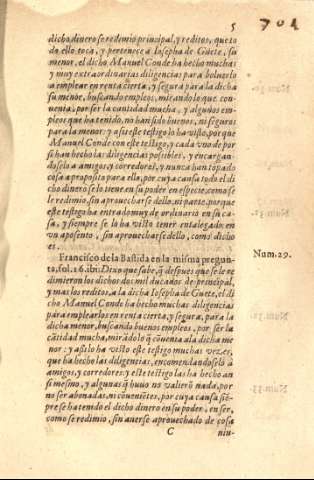 5 701
dicho dinero se redimio principal, y reditos, que to
do ello toca, y pertenece a Iosepha de Guete, su
menor, el dicho Manuel Conde ha hecho muchas
y muy extraordinarias diligencias para boluerlo
a emplear en renta cierta, y segura para la dicha
su menor, buscando empleos, mirando lo que con-
uenta, por ser la cantidad mucha, y algunos em-
pleos que ha tenido, no han sido buenos, ni seguros
para la menor: y assi este testigo lo ha visto, porque
Manuel Conde con este testigo, y cada vno de por
si han hecho las diligencias posibles, y encargan-
doselo a amigos, y corredores, y nunca han topado
cosa a proposito para ello, por cuya causa todo el di
cho dinero se lo tiene en su poder en especie, como se
le redimio, sin aprouecharse dello, ni parte, porque
este testigo ha entrado muy de ordinario en su ca-
sa, y siempre se lo ha visto tener entalegado en
vn aposento, sin aprouecharse dello, como dicho
es.
Francisco de la Bastida en la misma pregun-
ta, fol. 26. ibi: Dixo que sabe, q̃ despues que se le re
dimieron los dichos dos mil ducados de principal,
y mas los reditos, a la dicha Iosepha de Guete, el di
cho Manuel Conde ha hecho muchas diligencias
para emplearlos en renta cierta, y segura, para la
dicha menor, buscando buenos empleos, por ser la
cãtidad mucha, mirãdo lo q̃ cõuenta a la dicha me
nor: y assi lo ha visto este testigo muchas vezes,
que ha hecho las diligencias, encomendandoselo à
amigos, y corredores: y este testigo las ha hecho an
si mesmo, y algunas q̃ huuo no valierõ nada, por
no ser abonadas, ni conuenientes, por cuya causa siẽ-
pre se ha tenido el dicho dinero en su poder, en ser,
como se redimio, sin auerse aprouechado de cosa
C niu-
Num. 29.